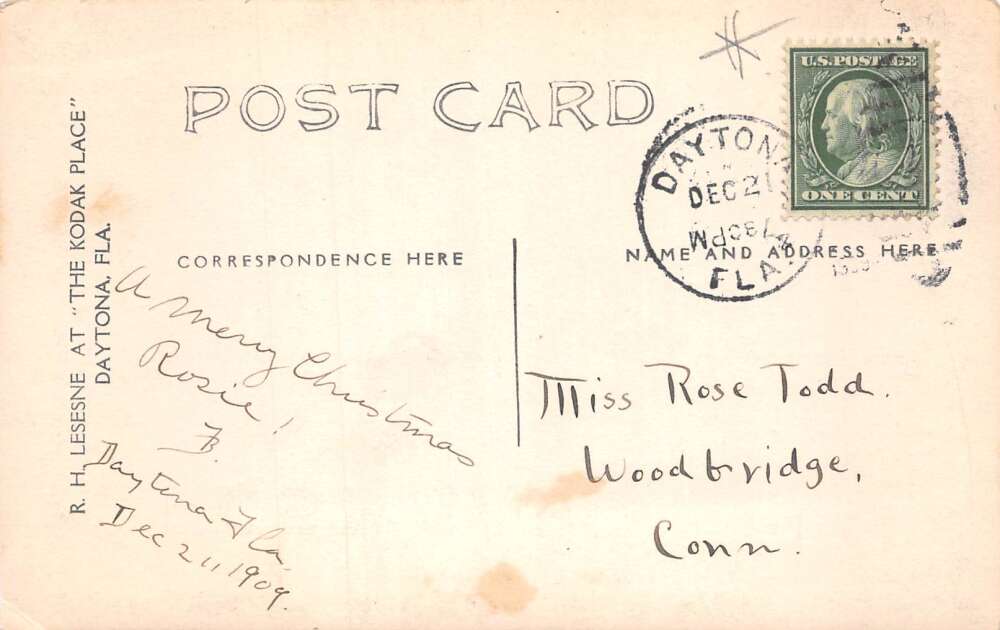 POST CARD
U.S. POSTAGE
ONE CENT
DAYTONA
DEC 21
PM
FLA.
R. H. LESESNE AT "THE KODAK PLACE"
DAYTONA, FLA.
CORRESPONDENCE HERE
NAME AND ADDRESS HERE
A Merry Christmas
Rosie!
B.
Daytona Fla.
Dec 21 1909.
Miss Rose Todd.
Woodbridge,
Conn.